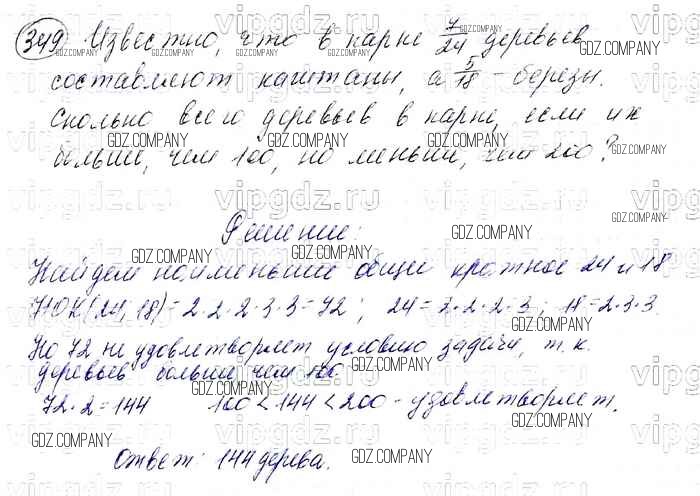 349 Известно, что в парке 7/24 деревьев
составляют каштаны, а 5/18 - березы.
Сколько всего деревьев в парке, если их
больше, чем 100, но меньше, чем 200?
Решение:
Найдем наименьшее общее кратное 24 и 18
НОК(24, 18)=2·2·2·3·3=72; 24=2·2·2·3; 18=2·3·3.
Но 72 не удовлетворяет условию задачи, т.к.
деревьев больше чем 100
72·2=144 100<144<200 - удовлетворяет.
Ответ: 144 дерева.
GDZ.COMPANY
vipgdz.ru